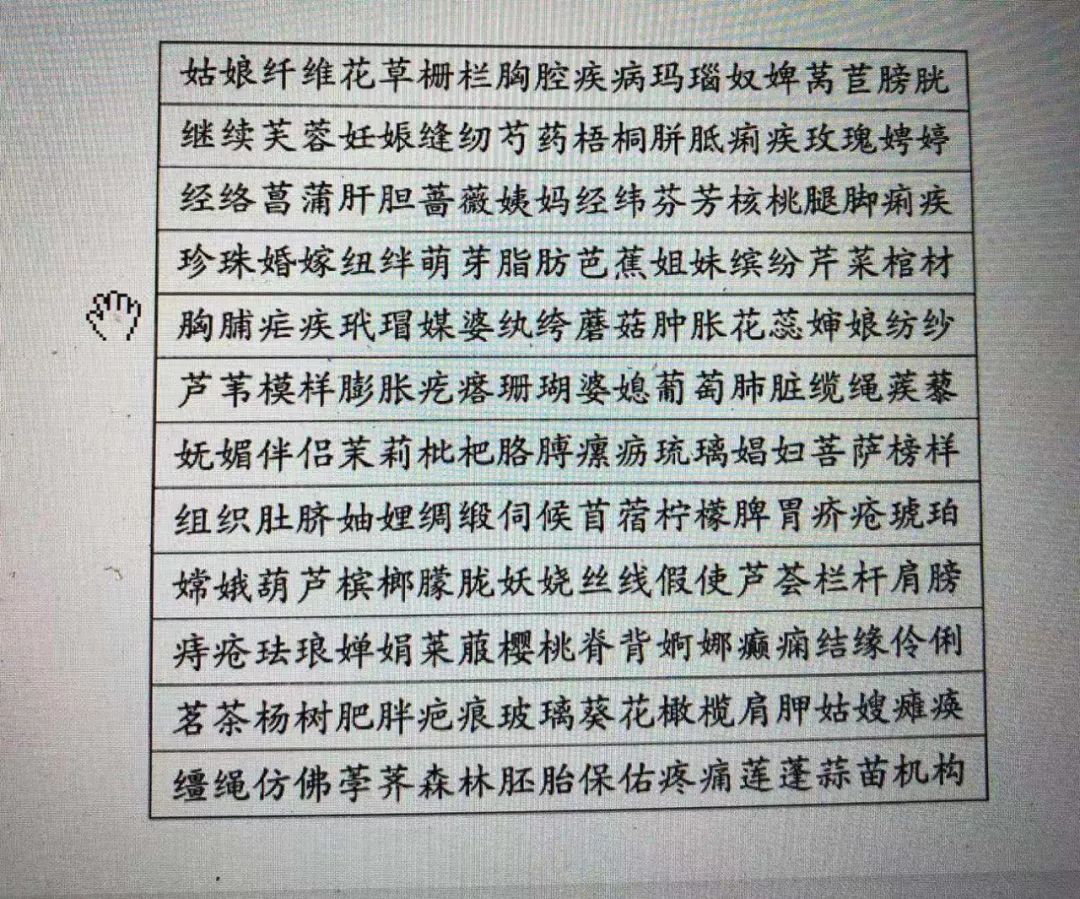 姑娘纤维花草栅栏胸腔疾病玛瑙奴婢莴苣膀胱
继续芙蓉妊娠缝纫芍药梧桐胼胝痢疾玫瑰娉婷
经络菖蒲肝胆蔷薇姨妈经纬芬芳核桃腿脚痢疾
珍珠婚嫁纽绊萌芽脂肪芭蕉姐妹缤纷芹菜棺材
胸脯疟疾玳瑁媒婆纨绔蘑菇肿胀花蕊婶娘纺纱
芦苇模样膨胀疙瘩珊瑚婆媳葡萄肺脏缆绳蒺藜
妩媚伴侣茉莉枇杷胳膊瘰疬琉璃娼妇菩萨榜样
组织肚脐妯娌绸缎伺候苜蓿柠檬脾胃疥疮琥珀
嫦娥葫芦槟榔朦胧妖娆丝线假使芦荟栏杆肩膀
痔疮珐琅婵娟菜菔樱桃脊背婀娜癫痫结缘伶俐
茗茶杨树肥胖疤痕玻璃葵花橄榄肩胛姑嫂瘫痪
缰绳仿佛荸荠森林胚胎保佑疼痛莲蓬蒜苗机构